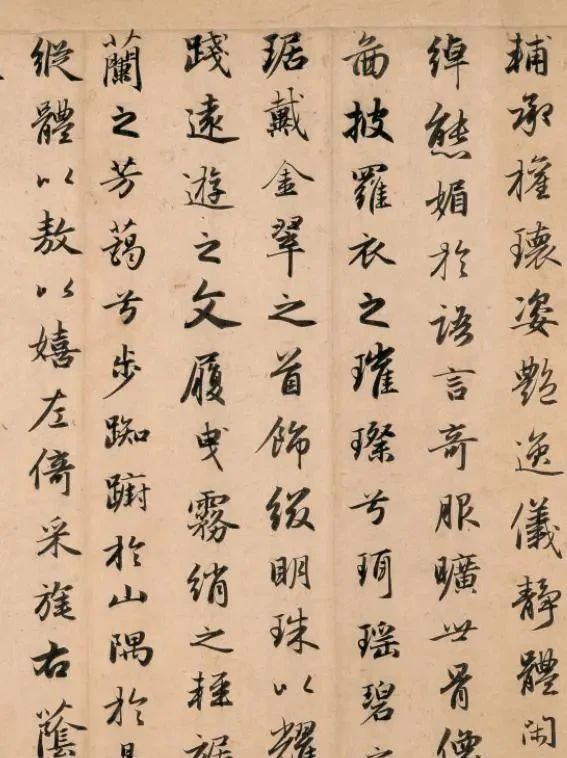 輔承權瓌姿艶逸儀静體閑
綽態媚於語言奇服曠世骨像
啚披羅衣之璀璨兮珥瑶碧之
琚戴金翠之首飾綴明珠以耀
踐遠遊之文履曳霧綃之輕裾
蘭之芳藹兮步踟蹰於山隅於是
縱體以敖以嬉左倚采旄右蔭